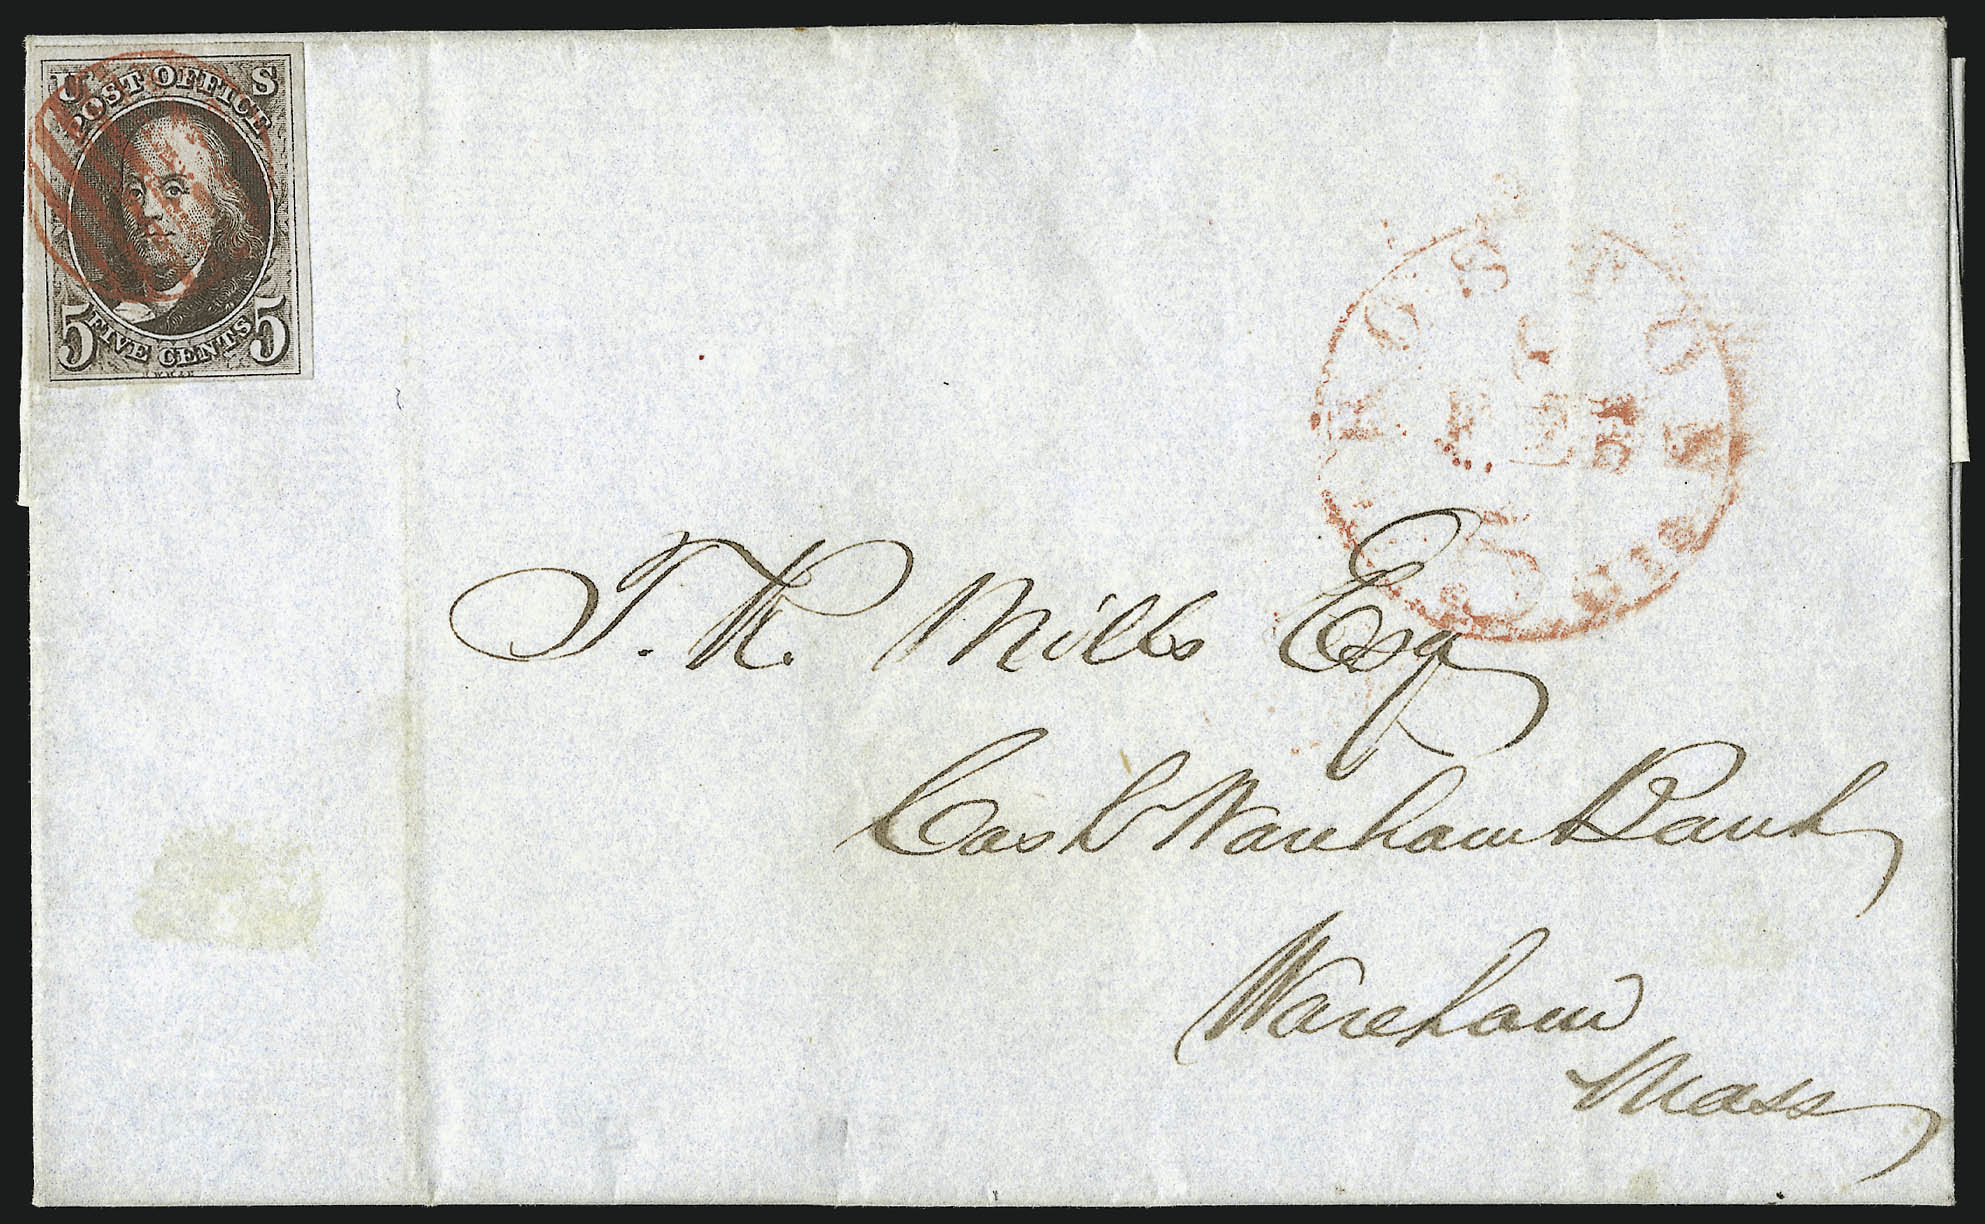 U S
POST OFFICE
5 FIVE CENTS 5
BOSTON
FEB
5 cts
T. R. Mills Esq
Cash Wareham Bank
Wareham
Mass